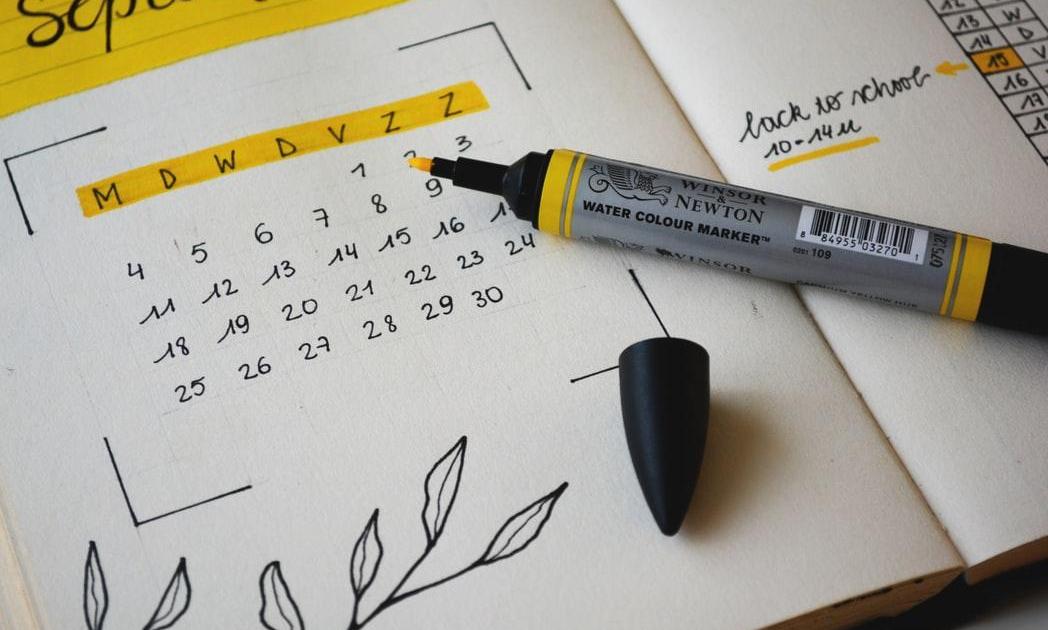 M D W D V Z Z
1 2 3
4 5 6 7 8 9
11 12 13 14 15 16
18 19 20 21 22 23 24
25 26 27 28 29 30
back to school
10-14u
WINSOR
&
NEWTON
WATER COLOUR MARKER™
WINSOR
8 84955 03270 1
0201 109
12
13 W
14 D
15 V
16
17